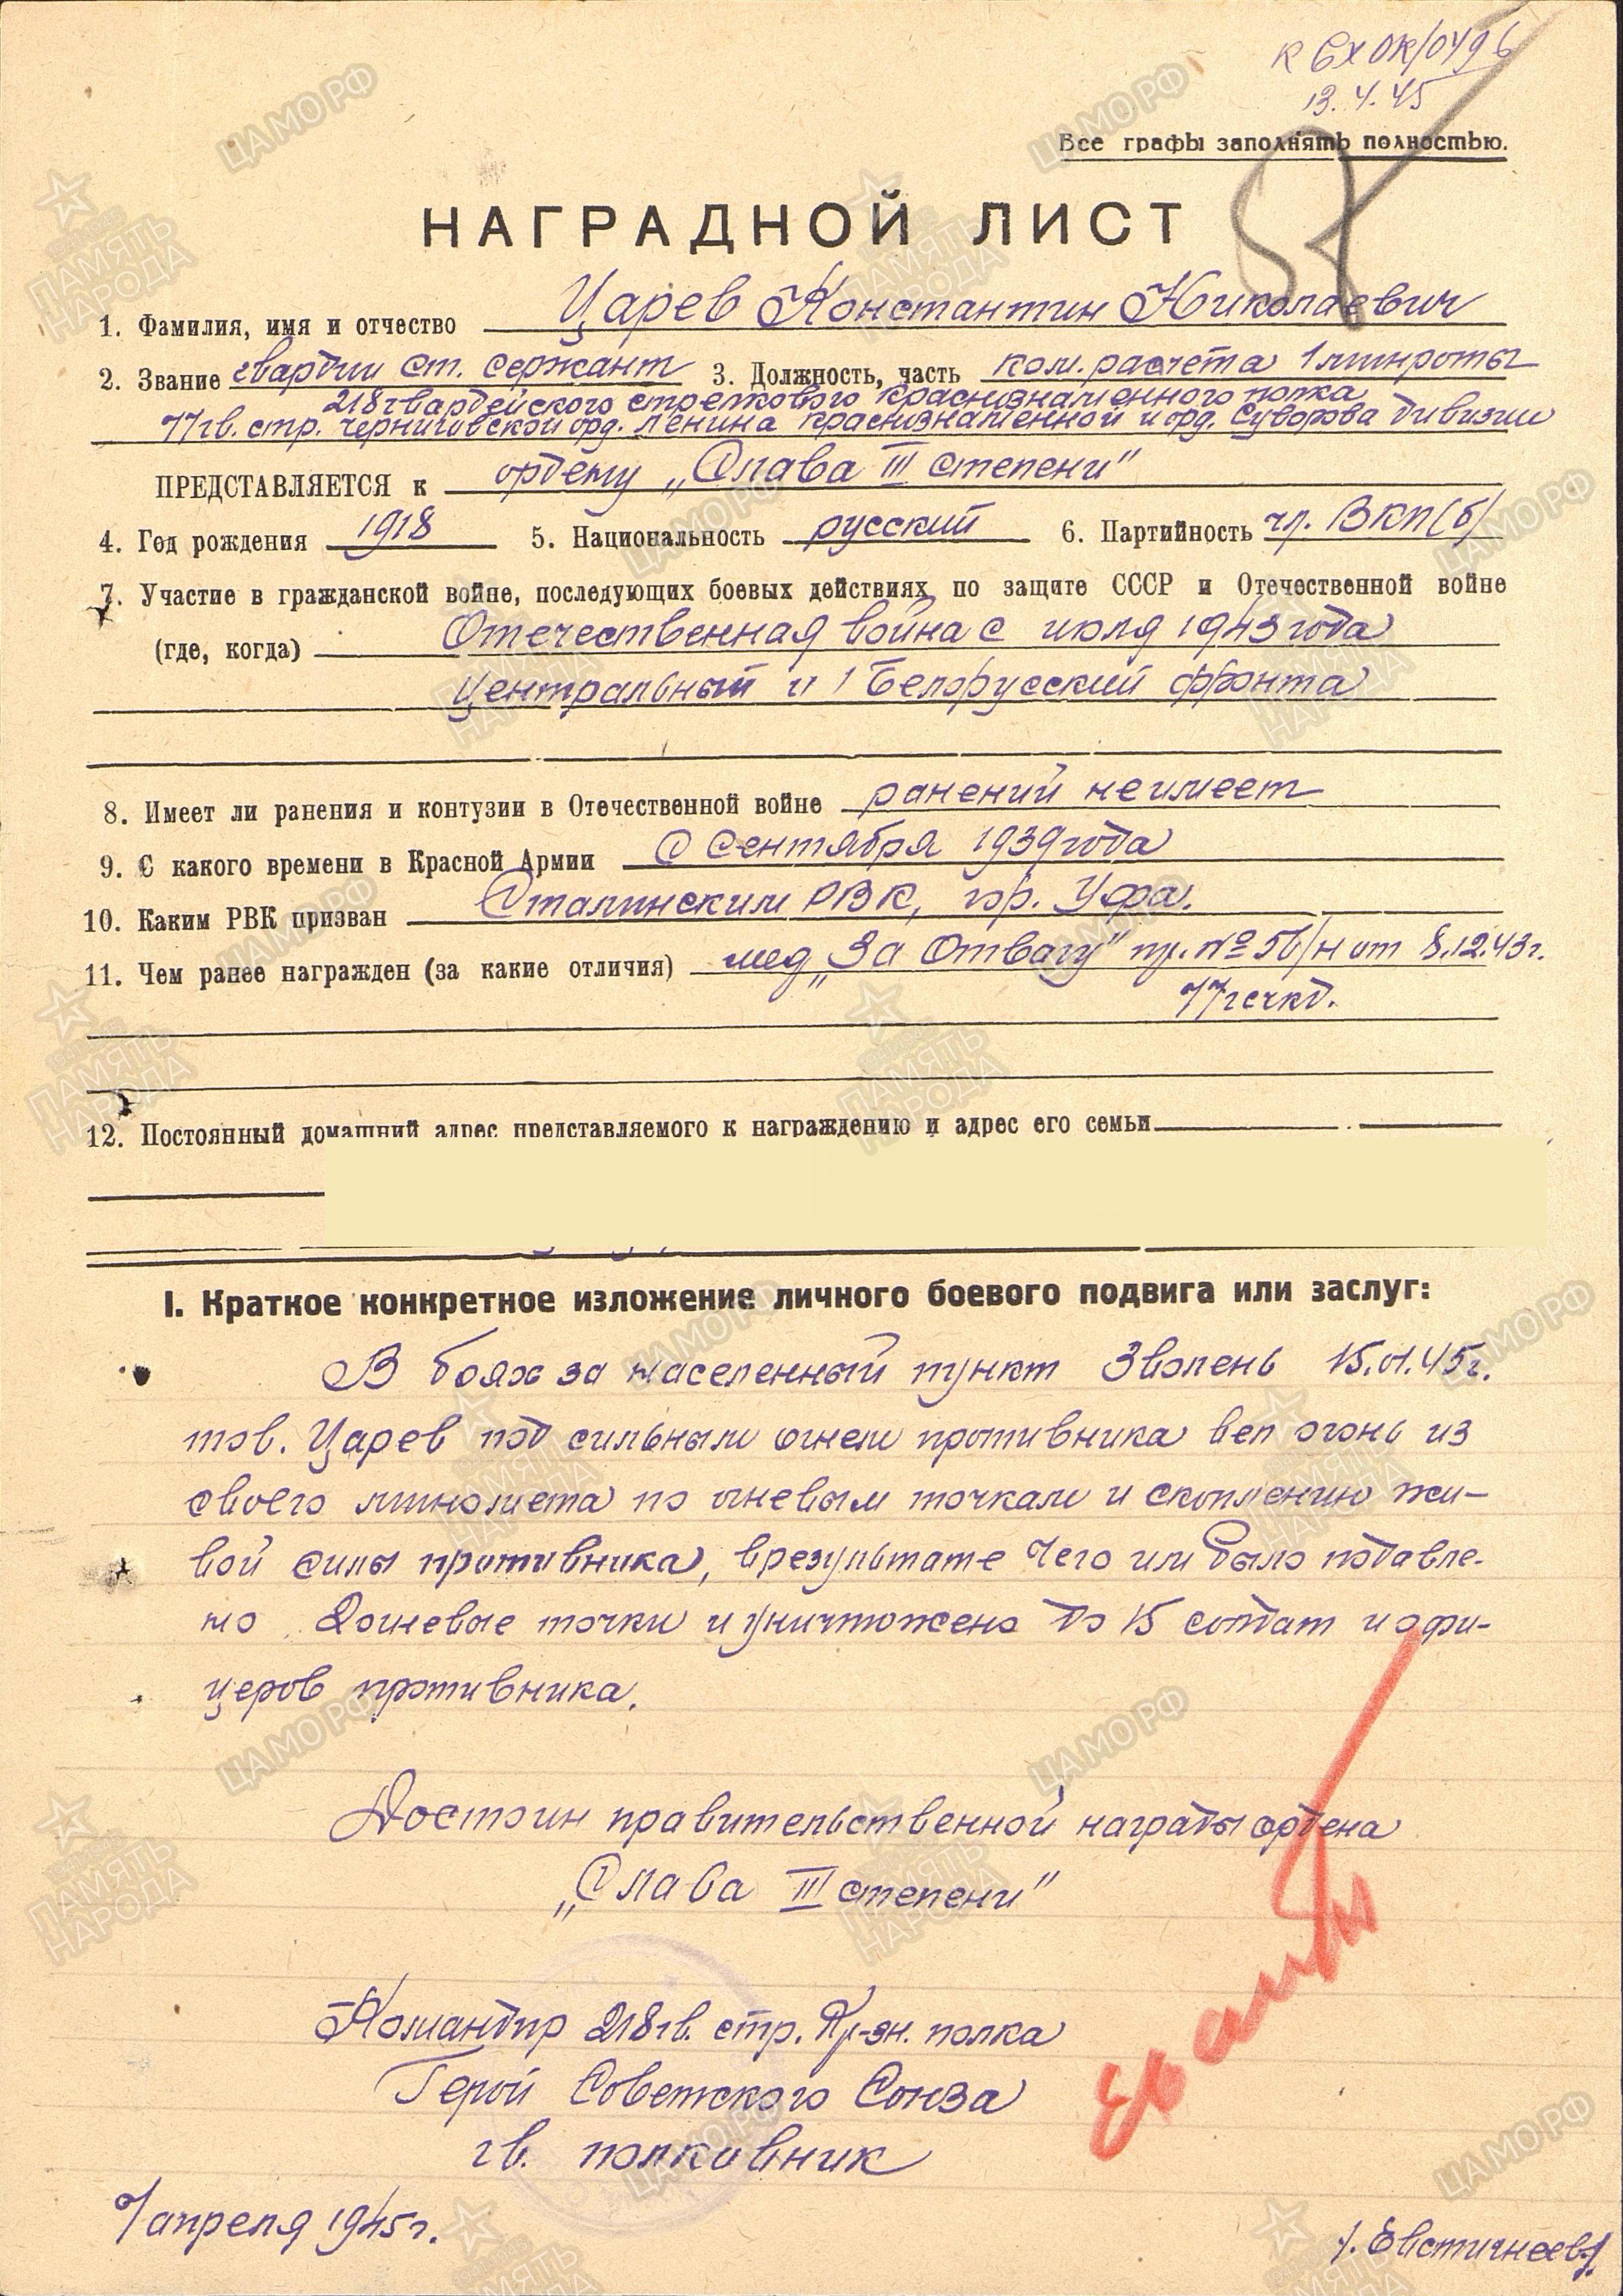 13.4.45
Все графы заполнять полностью.
НАГРАДНОЙ ЛИСТ
1. Фамилия, имя и отчество Царев Константин Николаевич
2. Звание гвардии ст. сержант 3. Должность, часть ком. расчета 1 минроты
218 гвардейского стрелкового Краснознаменного полка
77 гв. стр. Черниговской орд. Ленина Краснознаменной и орд. Суворова дивизии
ПРЕДСТАВЛЯЕТСЯ к ордену „Слава III степени"
4. Год рождения 1918 5. Национальность русский 6. Партийность чл. ВКП(б)
7. Участие в гражданской войне, последующих боевых действиях по защите СССР и Отечественной войне
(где, когда) Отечественная война с июля 1943 года
Центральный и 1 Белорусский фронта
8. Имеет ли ранения и контузии в Отечественной войне ранений не имеет
9. С какого времени в Красной Армии С сентября 1939 года
10. Каким РВК призван Сталинским РВК, гор. Уфа.
11. Чем ранее награжден (за какие отличия) мед „За Отвагу" пр. № 56/н от 8.12.43г.
77 гсчкд.
12. Постоянный домашний адрес представляемого к награждению и адрес его семьи
I. Краткое конкретное изложение личного боевого подвига или заслуг:
В боях за населенный пункт Зволень 15.01.45г.
тов. Царев под сильным огнем противника вел огонь из
своего миномета по огневым точкам и скоплению жи-
вой силы противника, в результате чего им было подавле-
но 2 огневые точки и уничтожено до 15 солдат и офи-
церов противника.
Достоин правительственной награды ордена
„Слава III степени"
Командир 218 гв. стр. Кр-зн. полка
Герой Советского Союза
гв. полковник
7 апреля 1945г.
/. Евстигнеев./
ЦАМО.РФ
ПАМЯТЬ НАРОДА